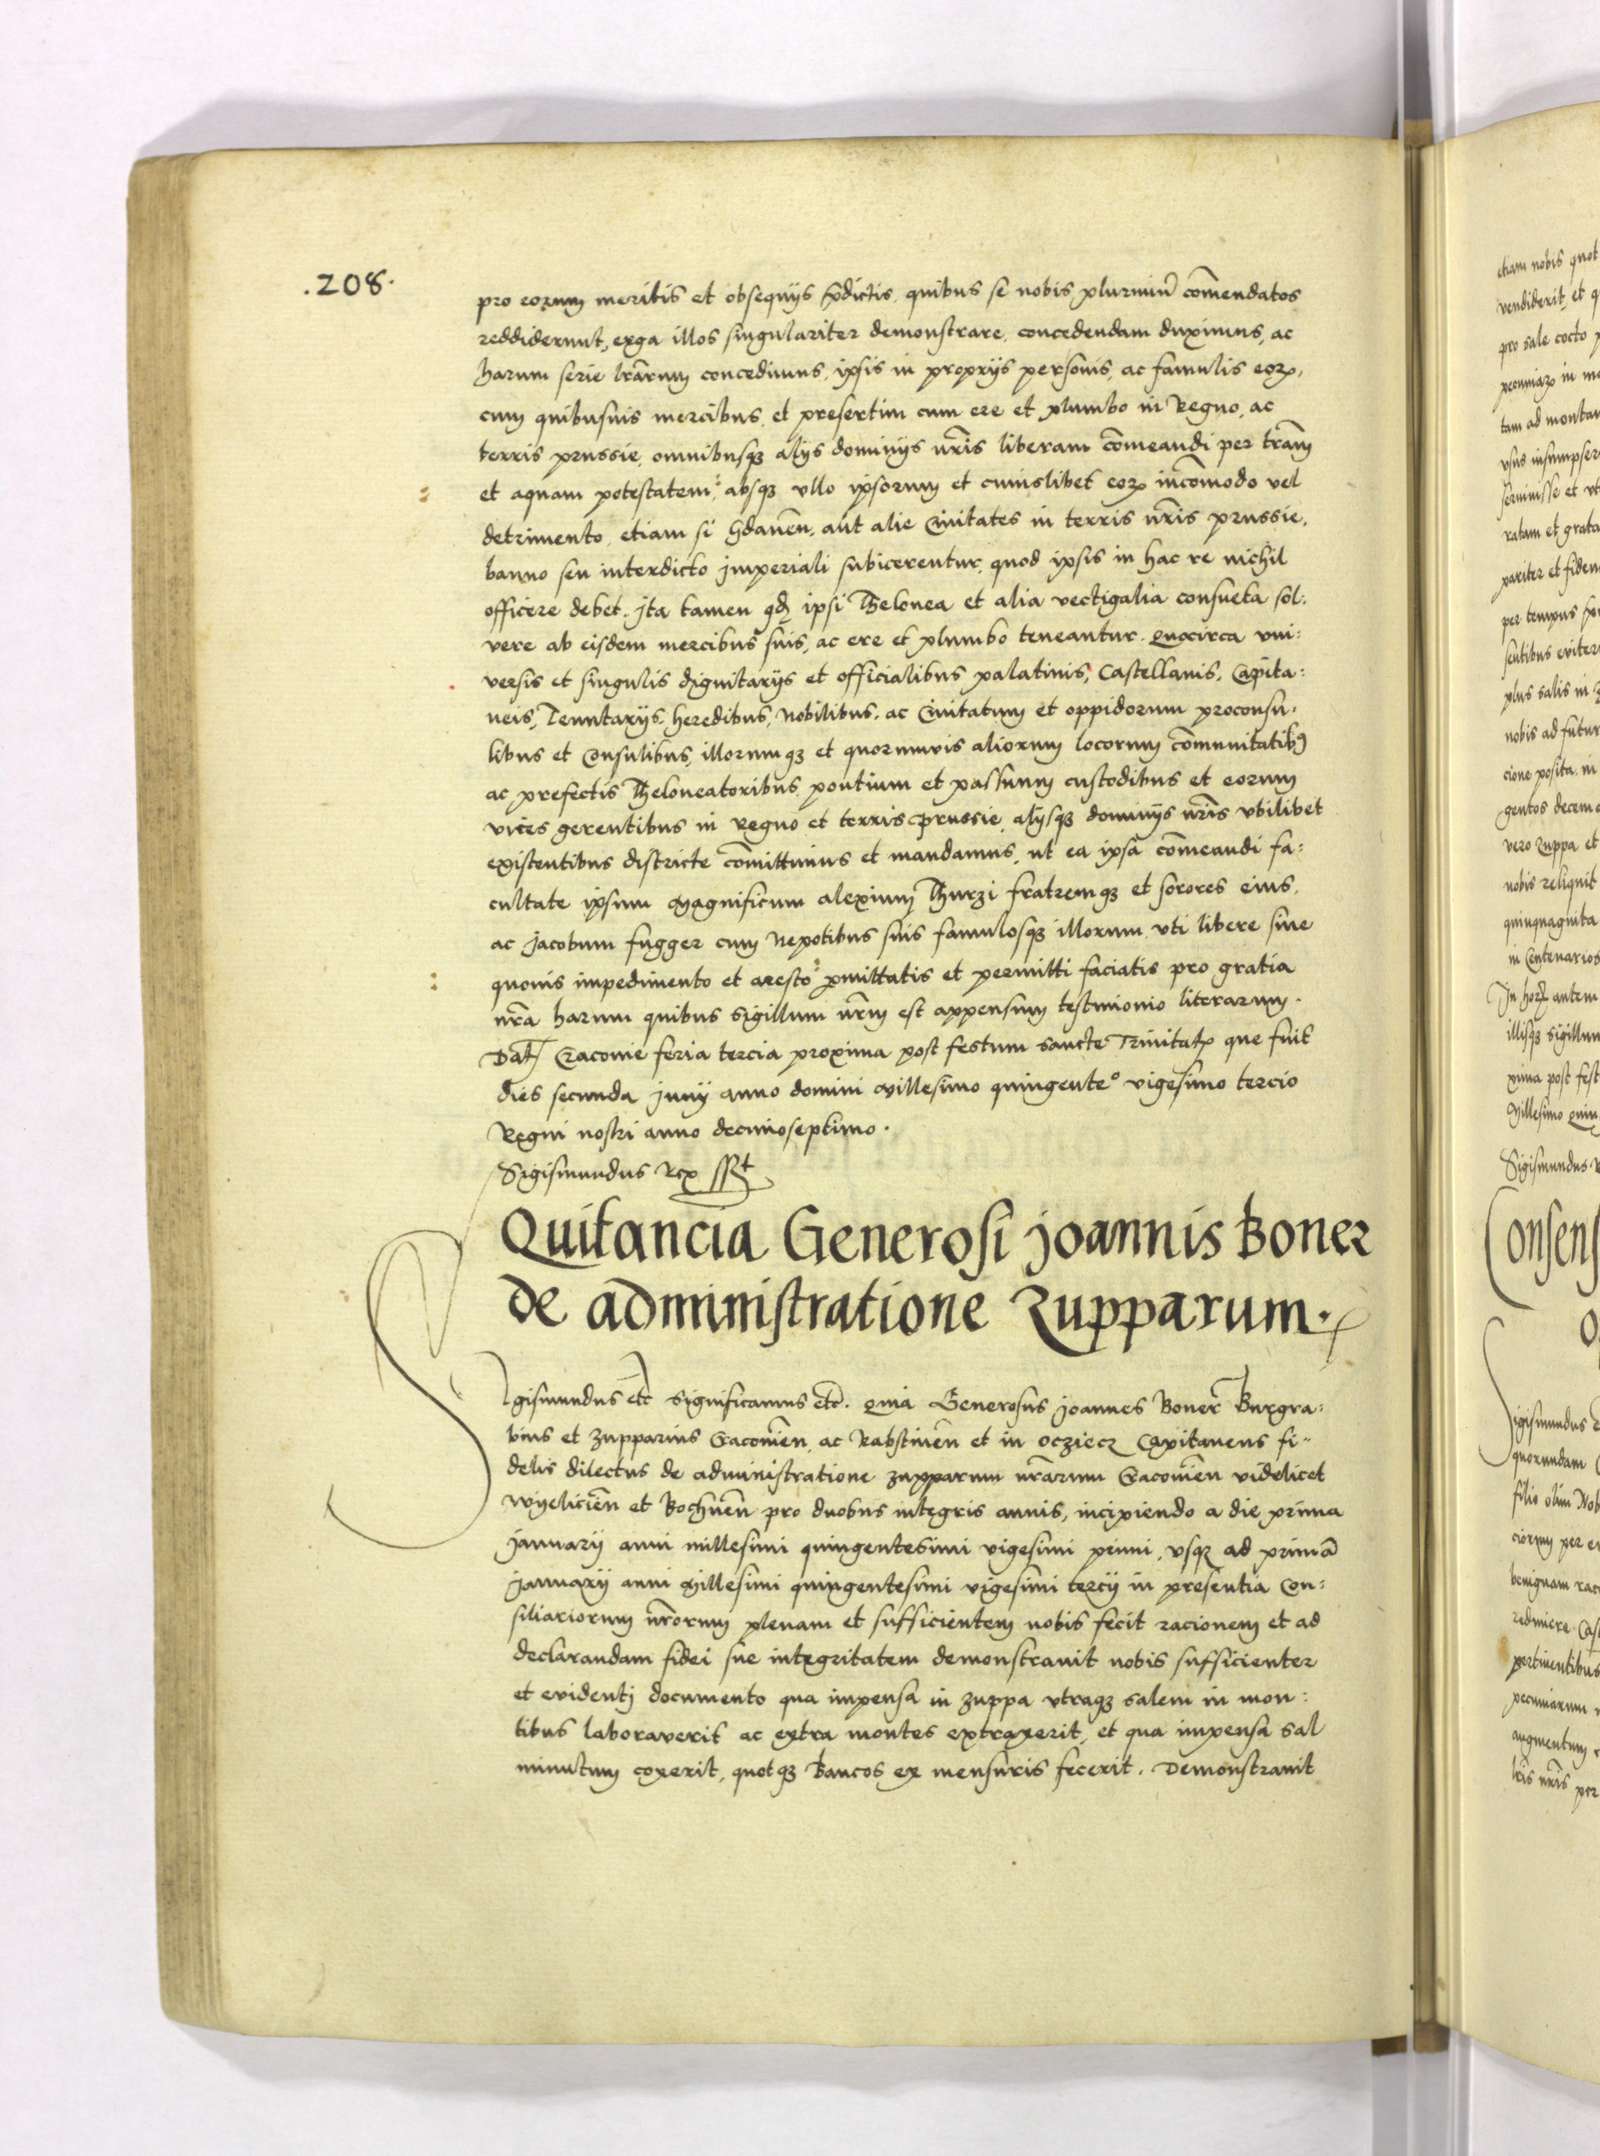 .208.
pro eorum meritis et obsequijs p̄dictis, quibus se nobis plurimū com̄endatos
reddiderunt, erga illos singulariter demonstrare, concedendam duximus, ac
harum serie l̄rarum concedimus, ipsis in proprijs personis, ac famulis eoꝝ,
cum quibusuis mercibus, et presertim cum ere et plumbo in Regno, ac
terris prussie, omnibusqꝫ alijs dominijs nr̄is liberam com̄eandi per trām
et aquam potestatem, absqꝫ vllo ipsorum et cuiuslibet eoꝝ incom̄odo vel
detrimento, etiam si Gdanen̄, aut alie Ciuitates in terris nr̄is prussie,
banno seu interdicto jmperiali subicerentur, quod ipsis in hac re nichil
officere debet. jta tamen qđ ipsi Thelonea et alia vectigalia consueta sol:
vere ab eisdem mercibus suis, ac ere et plumbo teneantur. Quocirca vni:
versis et singulis dignitarijs et officialibus palatinis, Castellanis, Capita:
neis, Tenutarijs, heredibus, Nobilibus, ac Ciuitatum et oppidorum proconsu:
libus et Consulibus, illorumqꝫ et quorumuis aliorum locorum com̄unitatibꝰ
ac prefectis Theloneatoribus, pontium et passuum custodibus et eorum
vices gerentibus in Regno et terris prussie, alijsqꝫ dominijs nr̄is vbilibet
existentibus districte com̄ittimus et mandamus, ut ea ipsa com̄eandi fa:
cultate ipsum Magnificum alexium Thurzi fratremqꝫ et sorores eius,
ac Jacobum fugger cum Nepotibus suis famulosqꝫ illorum vti libere sine
quouis impedimento et aresto pmittatis et permitti faciatis pro gratia
nr̄a harum quibus sigillum nr̄m est appensum testimonio literarum.
Dat̄ Cracouie feria tercia proxima post festum sancte Trinitatꝭ que fuit
dies secunda junij anno domini Millesimo quingenteº vigesimo tercio
Regni nostri anno decimoseptimo.
Sigismundus Rex sst
Quitancia Generosi joannis Boner
de administratione Zupparum.
Sigismundus etc significamus etc. Quia Generosus joannes Boner Burgra:
bius et zupparius Cracouien̄, ac Rabstinen̄ et in Ocziecz Capitaneus fi:
delis dilectus de administratione zupparum nr̄arum Cracouien̄ videlicet
Wyelicien̄ et Bochnen̄ pro duobus integris annis, incipiendo a die prima
januarij anni millesimi quingentesimi vigesimi primi, vsqꝫ ad primā
januarij anni Millesimi quingentesimi vigesimi tercij in presentia Con:
siliariorum nr̄orum plenam et sufficientem nobis fecit racionem et ad
declarandam fidei sue integritatem demonstrauit nobis sufficienter
et euidentj documento qua impensa in zuppa vtraqꝫ salem in mon:
tibus laboraverit ac extra montes extraxerit, et qua impensa sal
minutum coxerit, quotqꝫ Bancos ex mensuris fecerit. Demonstrauit